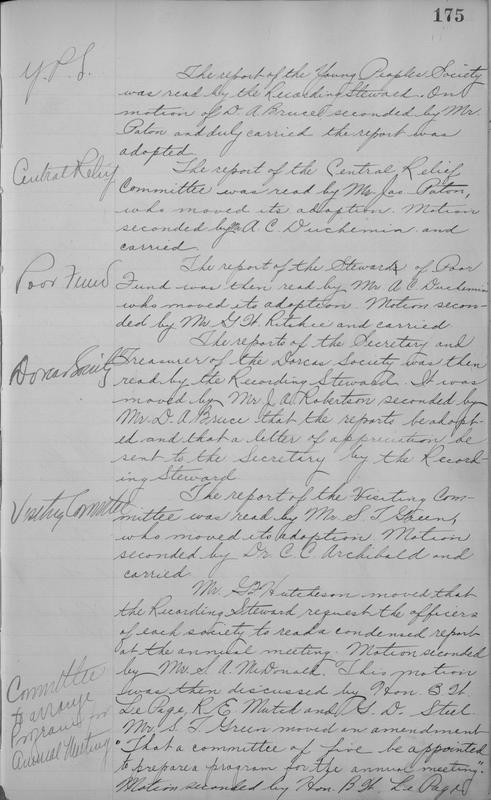 175
Y. P. S.
The report of the Young Peoples Society
was read by the Recording Steward. On
motion of D. A Bruce seconded by Mr.
Paton and duly carried the report was
adopted
Central Relief
The report of the Central Relief
Committee was read by Mr Jas. Paton,
who moved its adoption. Motion
seconded by A C. Duchemin and
carried.
Poor Fund
The report of the Stewards of Poor
Fund was then read by Mr A. C. Duchemin
who moved its adoption. Motion secon-
ded by Mr G. H. Ritchie and carried
Dorcas Society
The reports of the Secretary and
Treasurer of the Dorcas Society was then
read by the Recording Steward. It was
moved by Mr J. A. Robertson seconded by
Mr D. A Bruce that the reports be adopt-
ed and that a letter of appreciation be
sent to the Secretary by the Record-
ing Steward
Visiting Committee
The report of the Visiting Com-
mittee was read by Mr. S. T. Green,
who moved its adoption. Motion
seconded by Dr. C. C. Archibald and
carried
Mr. Hutcheson moved that
the Recording Steward request the officers
of each society to read a condensed report
at the annual meeting. Motion seconded
by Mr. S. A. McDonald. This motion
was then discussed by Hon. B. H.
Le Page, R. E. Mutch and G. D. Steel.
Mr. S. T. Green moved an amendment
"That a committee of five be appointed
to prepare a program for the annual meeting."
Motion seconded by Hon. B. H. Le Page
Committee
to arrange
Program for
Annual Meeting